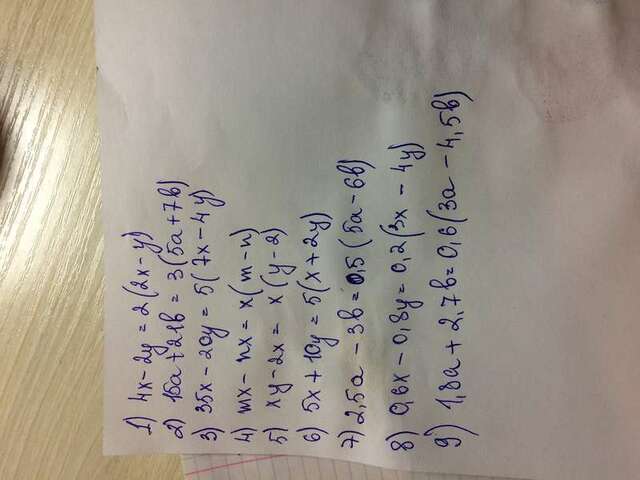 1) 4x - 2y = 2(2x - y)
2) 15a + 21b = 3(5a + 7b)
3) 35x - 20y = 5(7x - 4y)
4) mx - nx = x(m - n)
5) xy - 2x = x(y - 2)
6) 5x + 10y = 5(x + 2y)
7) 2,5a - 3b = 0,5(5a - 6b)
8) 0,6x - 0,8y = 0,2(3x - 4y)
9) 1,8a + 2,7b = 0,6(3a - 4,5b)